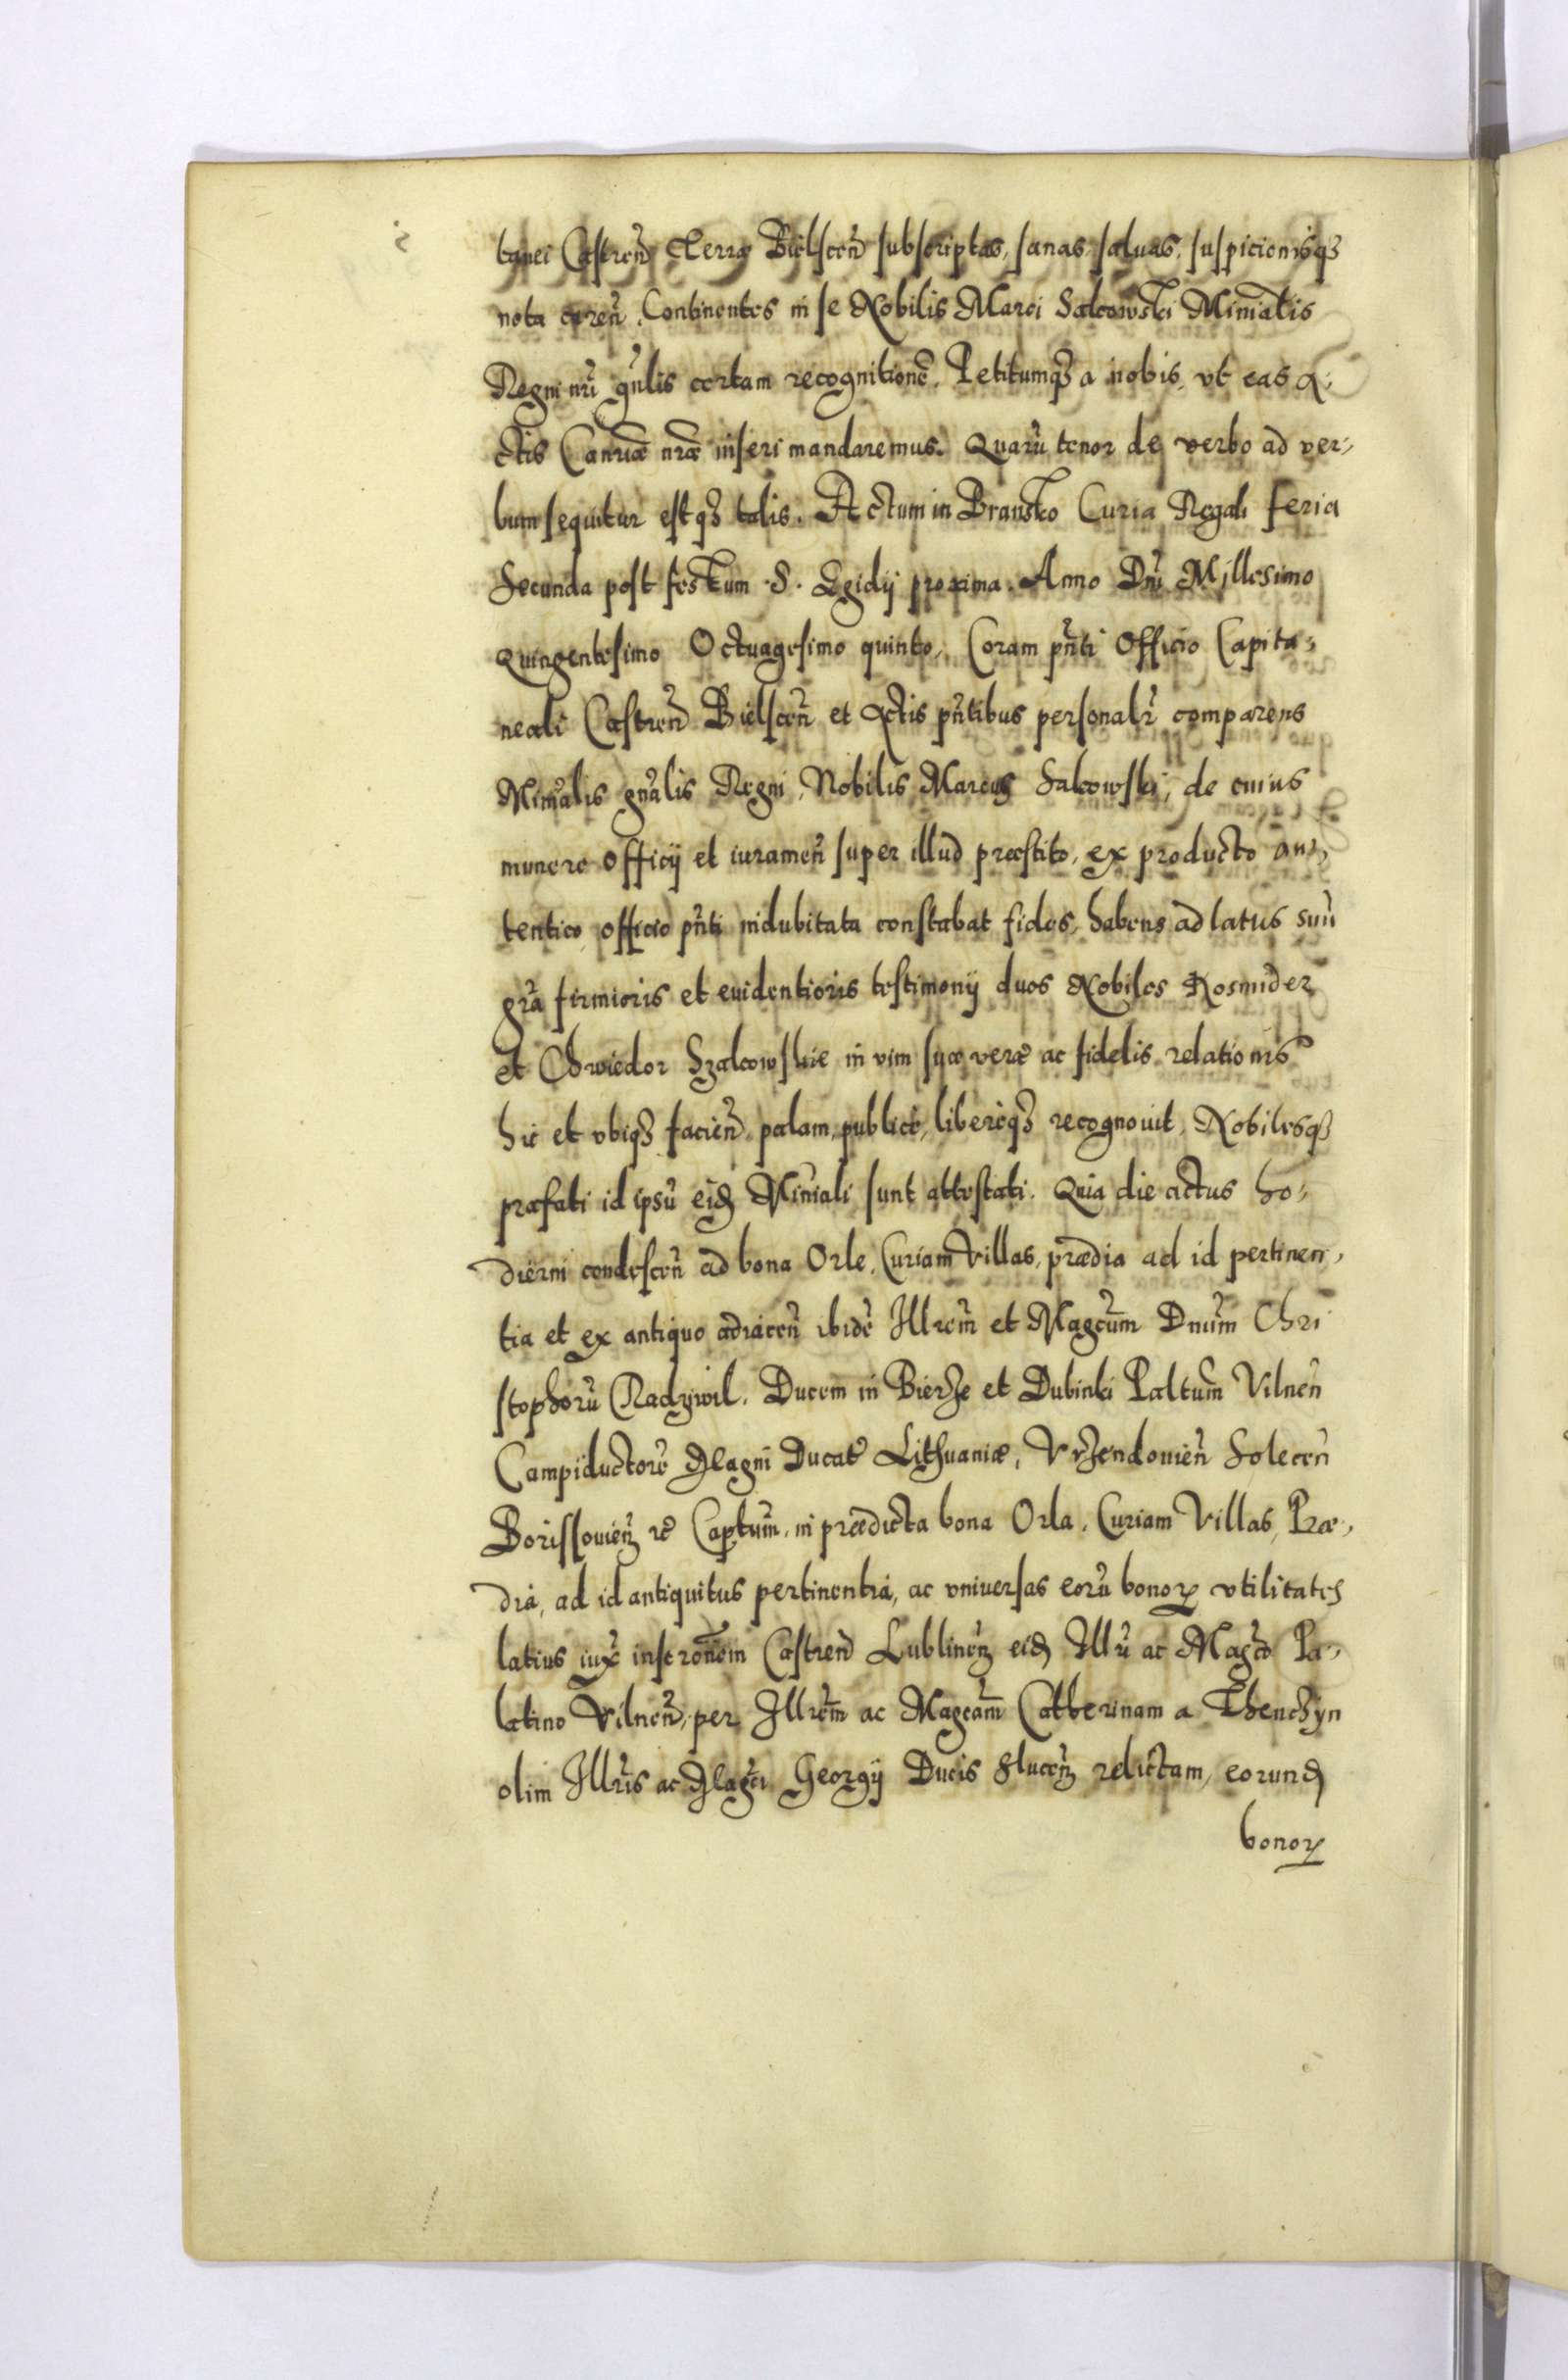 tanei Castreñ Terræ Bielsceñ subscriptas, sanas saluas, suspicionisqȝ
nota careñ. Continentes in se Nobilis Marci Salcowski Minialis
Regni nr̃i gñlis certam recognitionẽ. Petitumqȝ a nobis, vt eas A-
ctis Canriæ nr̃æ inseri mandaremus. Quarũ tenor de verbo ad ver-
bum sequitur estqȝ talis. Actum in Bransko Curia Regali feria
Secunda post festum .S. Egidij proxima. Anno Dñi Millesimo
Quingentesimo Octuagesimo quinto, Coram pñti Officio Capita-
neali Castreñ Bielsceñ et Actis pñtibus personalr̃ comparens
Minialis gñalis Regni, Nobilis Marcus Salcowski, de cuius
munere officij et iurameñ super illud præstito, ex producto au-
tentico, officio pñti indubitata constabat fides, habens ad latus suũ
gr̃a firmioris et euidentioris testimonij duos Nobiles Rosmider
et Chwiedor Szalcowskie in vim suæ veræ ac fidelis relationis
hic et vbiqȝ facieñ palam, publicè, liberèqȝ recognouit, Nobilesqȝ
præfati id ipsũ eid Miniali sunt attestati. Quia die actus ho-
dierni condesceñ ad bona Orle, Curiam Villas, prædia ad id pertinen-
tia et ex antiquo adiaceñ ibidẽ Illrem̃ et Magcum̃ Dnum̃ Chri
stophorũ Radziwil. Ducem in Bierze et Dubinki Paltum̃ Vilneñ
Campiductorẽ Magni Ducat9 Lithuaniæ, Vrzendouieñ Soleceñ
Borissouieñ etc Captum̃, in prædicta bona Orla, Curiam Villas, Præ-
dia, ad id antiquitus pertinentia, ac vniuersas eorũ bonoꝝ vtilitates
latius iux̃ inscronem̃ Castreñ Lublineñ eid Illr̃i ac Magco̊ Pa-
latino Vilneñ, per Illrem̃ ac Magcam̃ Catherinam a Thenczyn
olim Illr̃is ac Magci Georgij Ducis Sluceñ relictam, eorund
bonoꝝ